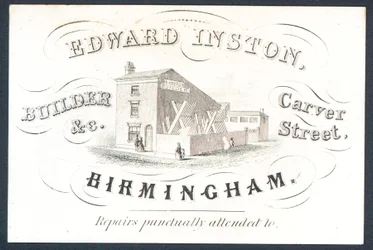 EDWARD INSTON,
BUILDER
&c.
Carver
Street,
BIRMINGHAM.
Repairs punctually attended to.